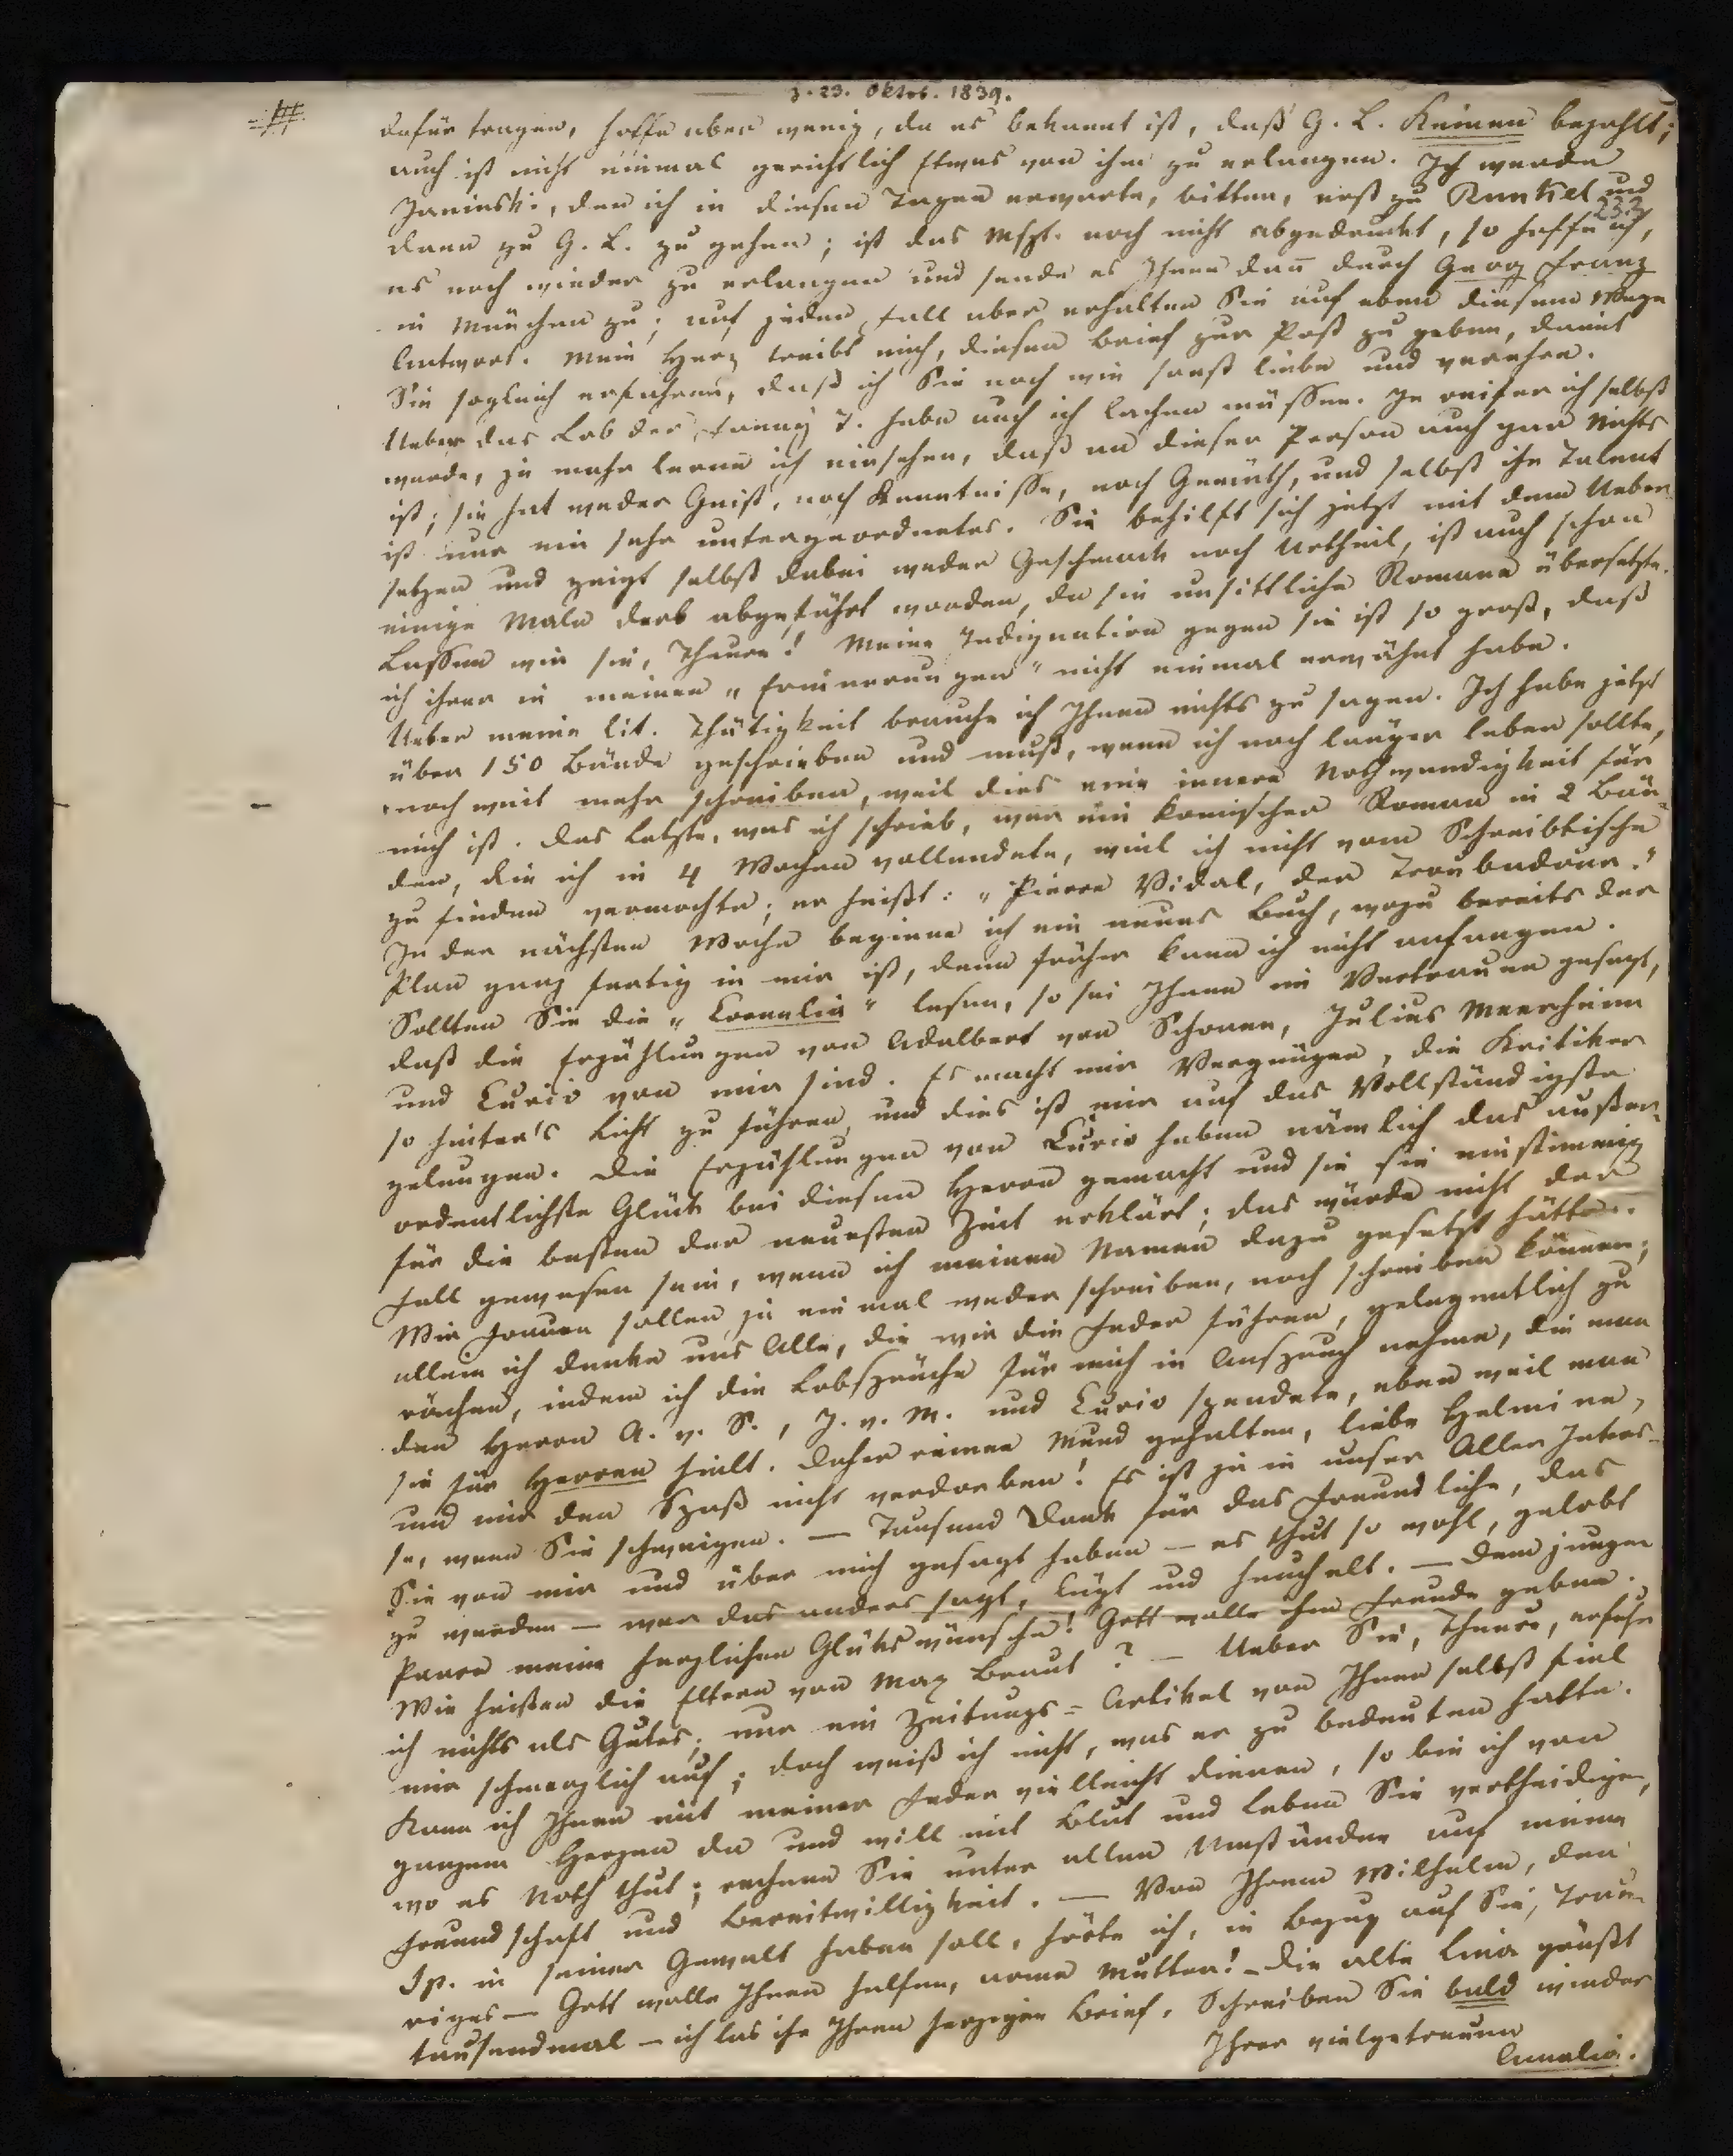 z. 23. Oktob. 1839.
dafür tragen, hoffe aber wenig, da es bekannt ist, daß G. L. Keinen bezahlt;
auch ist nicht einmal gerichtlich Etwas von ihm zu erlangen. Ich werde
Janinski, den ich in diesen Tagen erwarte, bitten, erst zu Runkel und
233
dann zu G. L. zu gehen; ist das Mspt. noch nicht abgedruckt, so hoffe ich,
es noch wieder zu erlangen und sende es Ihnen dan̄ durch Georg Franz
in München zu; auf jeden Fall aber erhalten Sie auf eben diesem Wege
Antwort. Mein Herz treibt mich, diesen Brief zur Post zu geben, damit
Sie sogleich erfahren, daß ich Sie noch wie sonst liebe und verehre.
Ueber das Lob der Fanny T. habe auch ich lachen müssen. Je reifer ich selbst
werde, je mehr lerne ich einsehen, daß an dieser Person auch gar Nichts
ist; sie hat weder Geist, noch Kenntnisse, noch Gemüth, und selbst ihr Talent
ist nur ein sehr untergeordnetes. Sie behilft sich jetzt mit dem Ueber-
setzen und zeigt selbst dabei weder Geschmack noch Urtheil, ist auch schon
einige Male derb abgeführt worden, da sie unsittliche Romane übersetzte.
Lassen wir sie, Theure! Meine Indignation gegen sie ist so groß, daß
ich ihrer in meinen „Erinnerungen" nicht einmal erwähnt habe.
Ueber meine lit. Thätigkeit brauche ich Ihnen nichts zu sagen. Ich habe jetzt
über 150 Bände geschrieben und muß, wenn ich noch länger leben sollte,
noch weit mehr schreiben, weil dies eine innere Nothwendigkeit für
mich ist. Das Letzte, was ich schrieb, war ein komischer Roman in 2 Bän-
den, die ich in 4 Wochen vollendete, weil ich nicht vom Schreibtische
zu finden vermochte; er heißt: „Pierre Vidal, der Troubadour."
In der nächsten Woche beginne ich ein neues Buch, wozu bereits der
Plan ganz fertig in mir ist, denn früher kann ich nicht anfangen.
Sollten Sie die „Cornelia" lesen, so sei Ihnen im Vertrauen gesagt,
daß die Erzählungen von Adalbert von Schonen, Julius Meerheim
und Curio von mir sind. Es macht mir Vergnügen, die Kritiker
so hinter's Licht zu führen, und dies ist mir auf das Vollständigste
gelungen. Die Erzählungen von Curio haben nämlich das außer-
ordentlichste Glück bei diesen Herren gemacht und sie sie einstimmig
für die besten der neuesten Zeit erklärt; das würde nicht der
Fall gewesen sein, wenn ich meinen Namen dazu gesetzt hätte.
Wir Frauen sollen ja einmal weder schreiben, noch schreiben können;
allein ich denke uns Alle, die wir die Feder führen, gelegentlich zu
rächen, indem ich die Lobsprüche für mich in Anspruch nehme, die man
den Herren A. v. S., J. v. M. und Curio spendete, eben weil man
sie für Herren hielt. Daher reinen Mund gehalten, liebe Helmine,
und mir den Spaß nicht verdorben! Es ist ja in unser Aller Inters-
se, wenn Sie schweigen. — Tausend Dank für das Freundliche, das
Sie von mir und über mich gesagt haben — es thut so wohl, gelobt
zu werden — wer das anders sagt, lügt und heuchelt. — Dem jungen
Paare meine herzlichen Glückswünsche! Gott wolle ihm Freude geben.
Wie heißen die Eltern von Max Braut? — Ueber Sie, Theure, erfuhr
ich nichts als Gutes; nur ein Zeitungs-Artikel von Ihnen selbst fiel
mir schmerzlich auf; doch weiß ich nicht, was er zu bedeuten hatte.
Kann ich Ihnen mit meiner Feder vielleicht dienen, so bin ich von
ganzem Herzen da und will mit Blut und Leben Sie vertheidigen,
wo es Noth thut; rechnen Sie unter allen Umständen auf meine
Freundschaft und Bereitwilligkeit. — Von Ihrem Wilhelm, den
Sp. in seiner Gewalt haben soll, hörte ich, in Bezug auf Sie, Trau-
riges — Gott wolle Ihnen helfen, arme Mutter! — Die alte Lina grüßt
tausendmal — ich las ihr Ihren herzigen Brief. Schreiben Sie bald wieder
Ihrer vielgetreuen
Amalia.